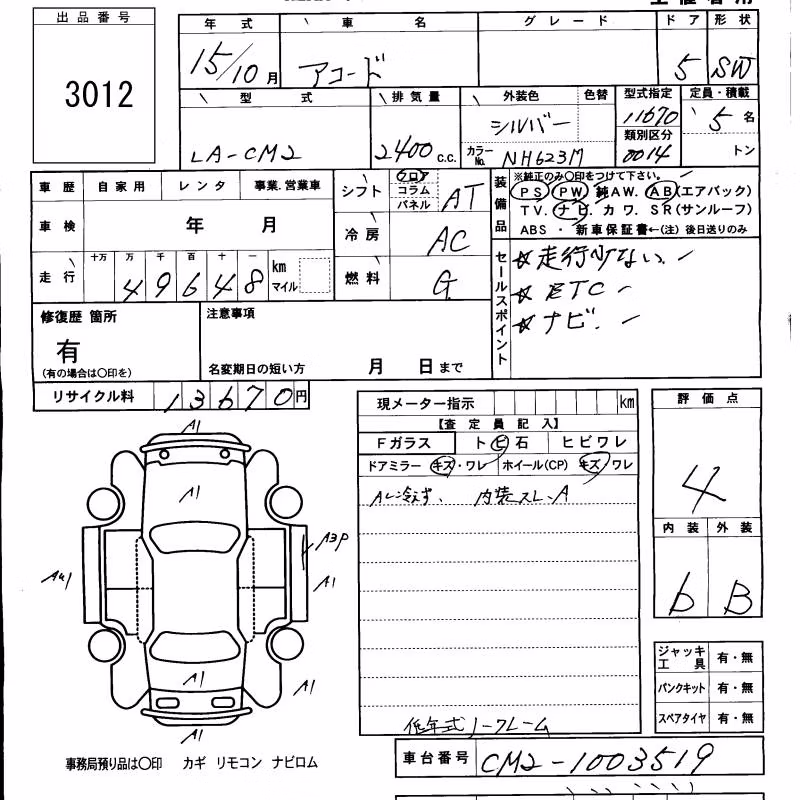 出品番号
3012
年式 車名 グレード ドア 形状
15/10月 アコード 5 SW
型式 排気量 外装色 色替 型式指定 定員・積載
LA-CM2 2400 c.c. シルバー 11670 5名
カラーNo. NH623M 類別区分 0014 トン
車歴 自家用 レンタ 事業.営業車
車検 年 月
走行 十万 万 千 百 十 一 km マイル
49648
シフト フロア コラム パネル AT
冷房 AC
燃料 G
装備品
※純正のみ〇印をつけて下さい。
PS PW 純AW. AB(エアバック)
TV. ナビ. カワ. SR(サンルーフ)
ABS ・ 新車保証書←(注)後日送りのみ
セールスポイント
☆走行少ない.
☆ETC
☆ナビ.
修復歴 箇所
有
(有の場合は〇印を)
注意事項
名変期日の短い方 月 日まで
リサイクル料 13670円
現メーター指示 km
【査定員記入】
Fガラス トビ石 ヒビワレ
ドアミラー キズ・ワレ ホイール(CP) キズ/ワレ
AC冷えず、 内装スレ-A
低年式ノークレーム
評価点
4
内装 外装
b B
A1
A1
A3P
AU1
A1
A1
A1
A1
ジャッキ工具 有・無
パンクキット 有・無
スペアタイヤ 有・無
事務局預り品は〇印 カギ リモコン ナビロム
車台番号 CM2-1003519